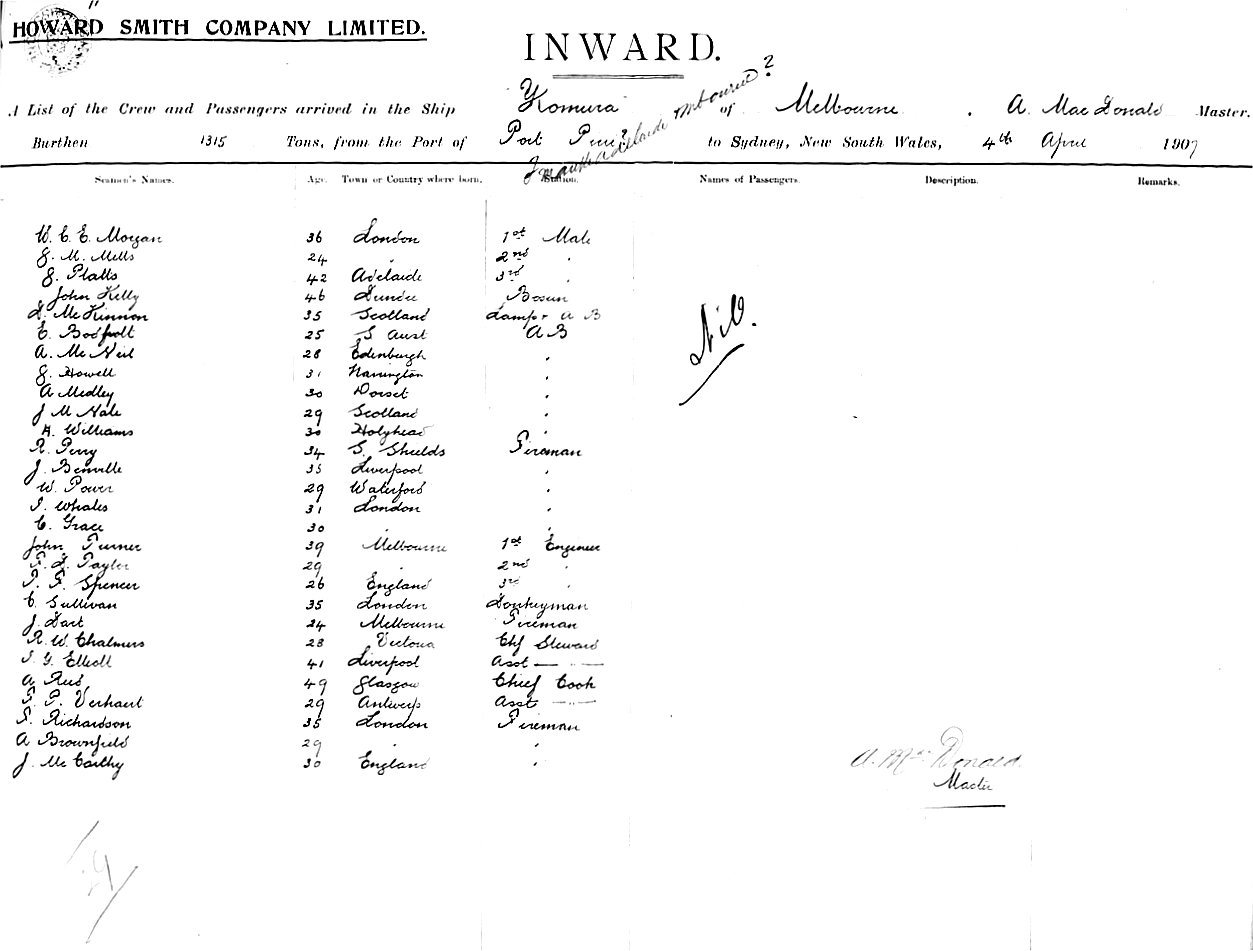 HOWARD SMITH COMPANY LIMITED.
INWARD.
A List of the Crew and Passengers arrived in the Ship "Yomura" of Melbourne. A. Mac Donald Master.
Burthen 1315 Tons, from the Port of Port Pirie? Adelaide Melbourne? to Sydney, New South Wales, 4th April 1907
Seamen's Names. Age. Town or Country where born. Station. Names of Passengers. Description. Remarks.
W. C. E. Morgan 36 London 1st Mate
G. M. Mills 24 " 2nd "
G. Platts 42 Adelaide 3rd "
John Kelly 46 Dundee Bosun
D. McKinnon 35 Scotland Lamps A B
E. 25 S Aust A B
A. McNeil 28 Edinburgh "
G. Howell 31 "
A Medley 30 Dorset "
J M Nale 29 Scotland "
H. Williams 30 Holyhead "
R. Perry 34 S. Shields Fireman
J. Benville 35 Liverpool "
W. Power 29 Waterford "
J. Whales 31 London "
C. Grace 30 "
John Turner 39 Melbourne 1st Engineer
F. L. Taylor 29 " 2nd "
T. F. Spencer 26 England 3rd "
C. Sullivan 35 London Donkeyman
J. Dart 24 Melbourne Fireman
R. W. Chalmers 23 Victoria Chf Steward
J. G. Elliott 41 Liverpool Asst — " —
A Reid 49 Glasgow Chief Cook
F. P. Verhaert 29 Antwerp Asst — " —
F. Richardson 35 London Fireman
A Brownfield 29 " "
J. McCarthy 30 England "
Nil.
A. MacDonald
Master